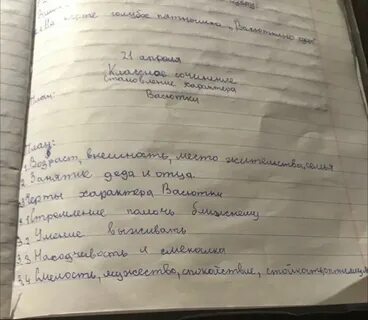 На карте голубое пятнышко, Васюткино озеро
21 апреля
Классное сочинение
становление характера
Васютки
План:
План:
1. Возраст, внешность, место жительства, семья
2. Занятие деда и отца
3. Черты характера Васютки
3.1 Стремление помочь ближнему
3.2 Умение выживать
3.3 Находчивать и смекалка
3.4 Смелость, мужество, спокойствие, стойкость, оптимизм